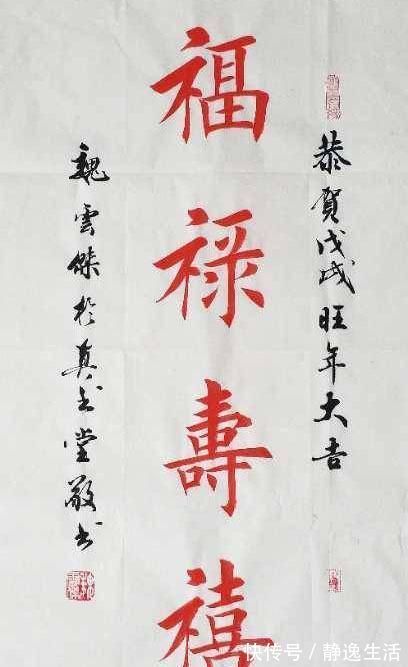 恭賀戊戌旺年大吉
福禄壽禧
魏雲傑於真書堂敬書
快传号/静逸生活